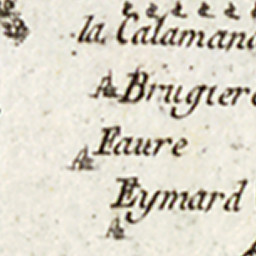 la Calamand
Brugiere
Faure
Eymard